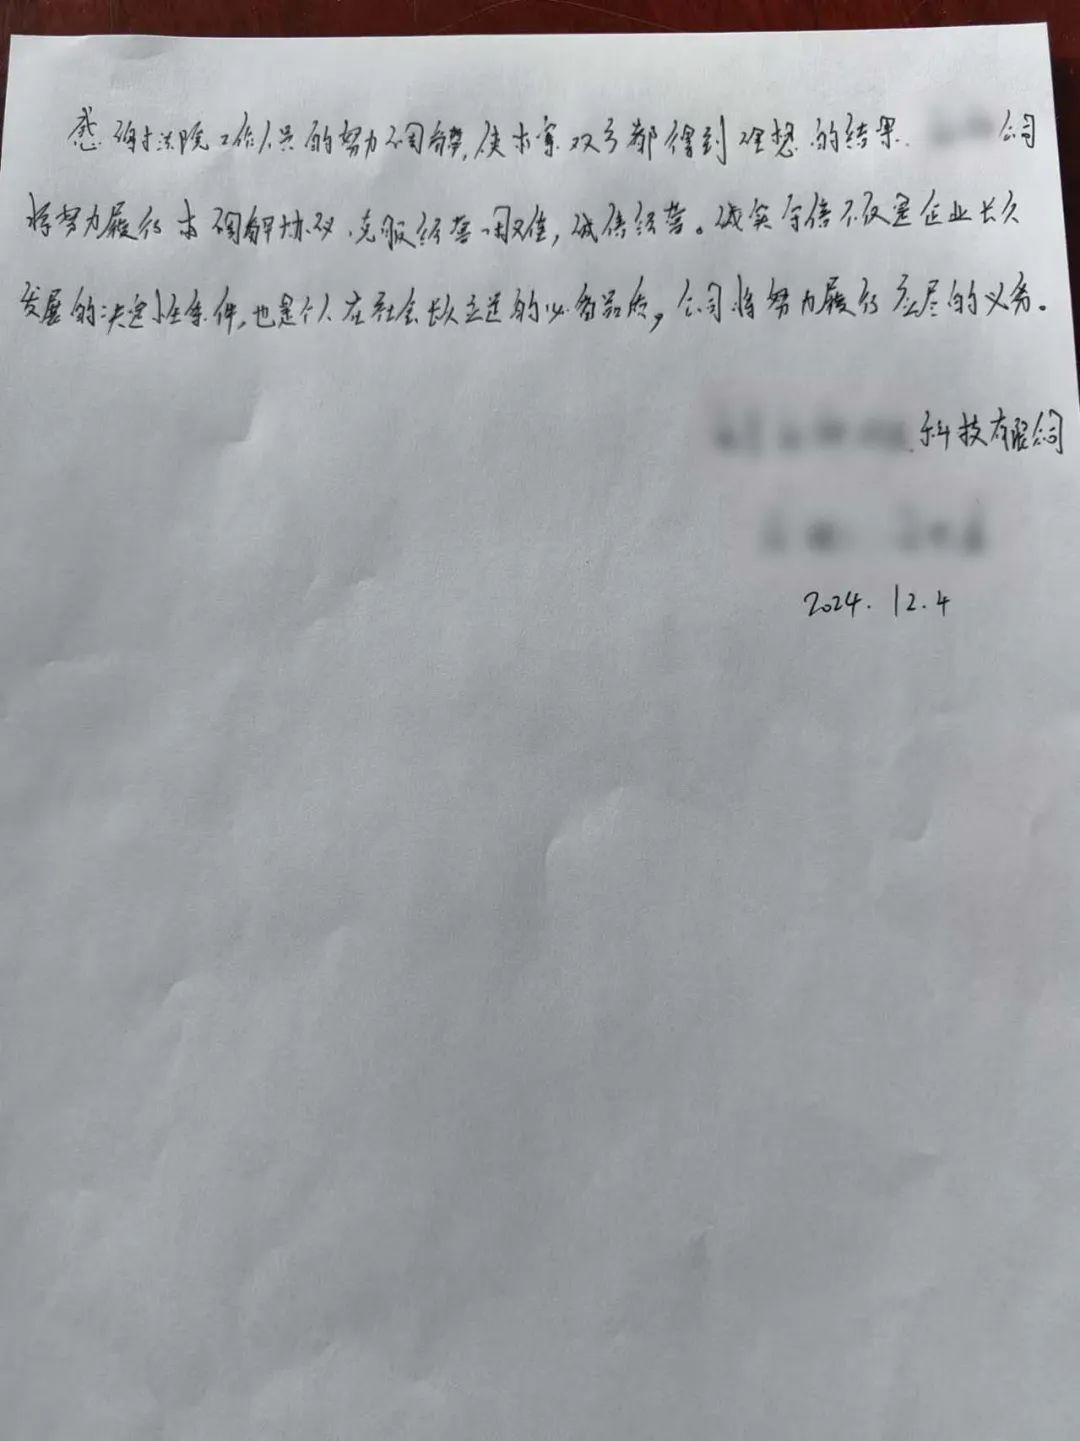 感谢法院工作人员的努力调解,使本案双方都得到理想的结果. 公司
将努力履行本调解协议,克服经营困难,诚信经营。诚实守信不仅是企业长久
发展的决定性条件,也是个人在社会长久立足的必备品质,公司将努力履行应尽的义务。
科技有限公司
2024.12.4